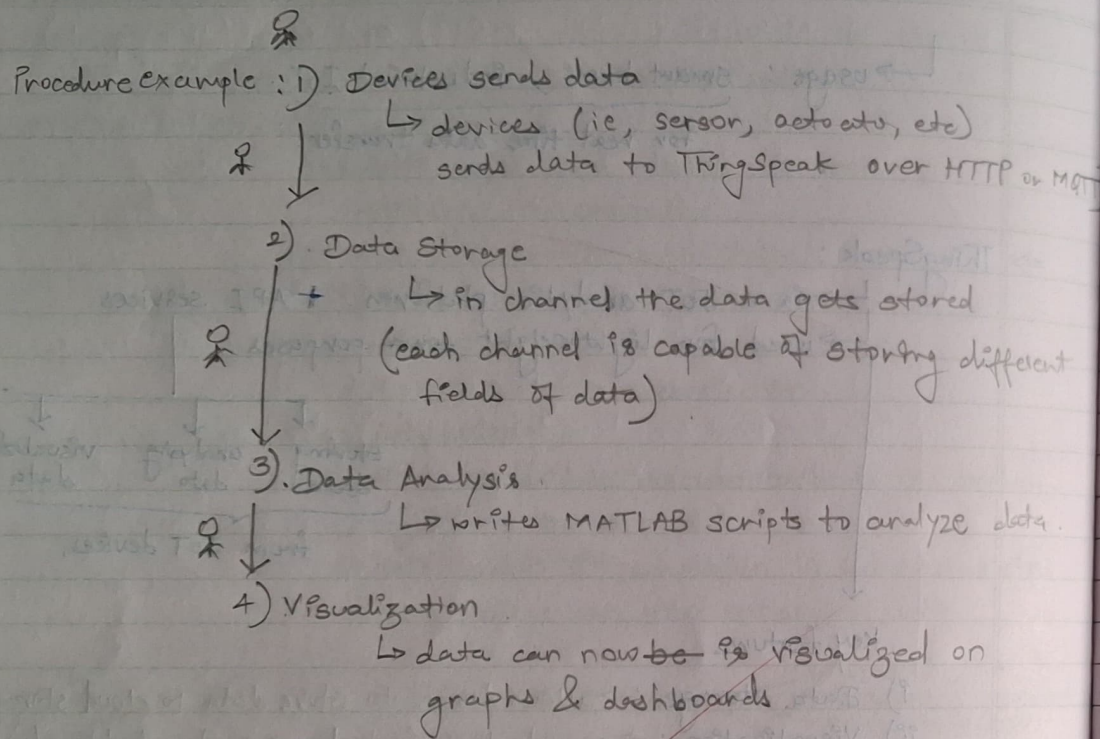 Procedure example : 1) Devices sends data
↳ devices (ie, sersor, actoato, etc)
sends data to ThingSpeak over HTTP or MQTT
2). Data Storage
+ ↳ in channel the data gets stored
(each channel is capable of storing different
fields of data)
3). Data Analysis.
↳ writes MATLAB scripts to analyze data.
4) Visualization
↳ data can now be is visualized on
graphs & dashboards